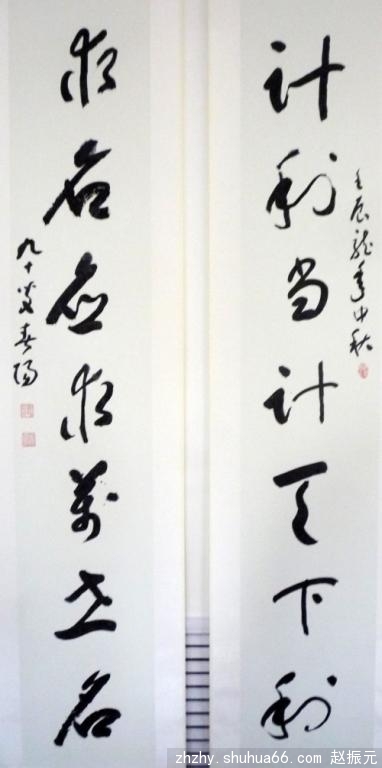 壬辰龙年中秋
计利当计天下利
求名应求万世名
九十叟春阳
zhzhy.shuhua66.com 赵振元